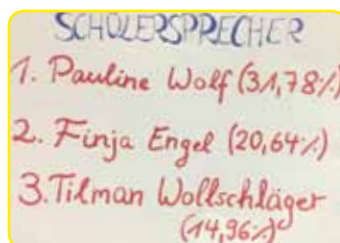 SCHÜLERSPRECHER
1. Pauline Wolf (31,78%)
2. Finja Engel (20,64%)
3. Tilman Wollschläger
(14,96%)